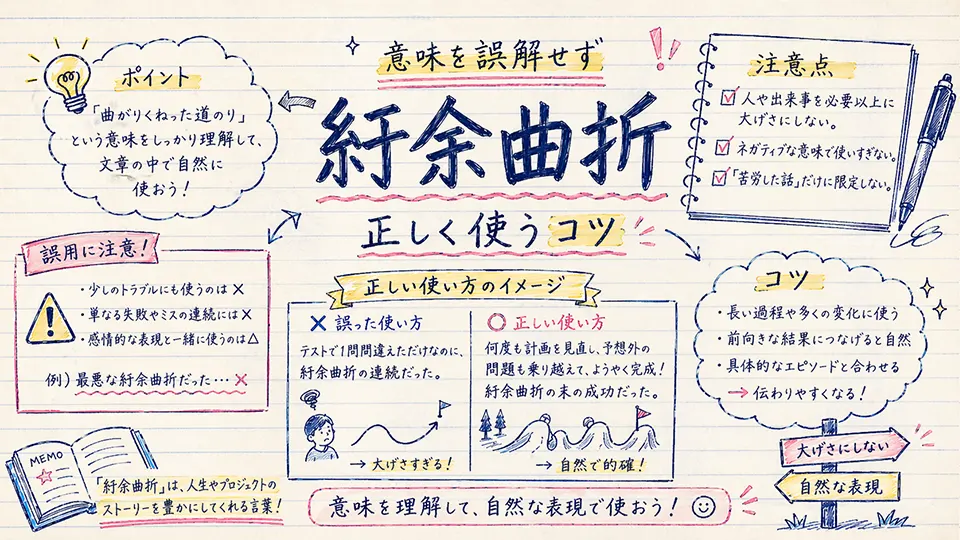 意味を誤解せず
紆余曲折
正しく使うコツ
ポイント
「曲がりくねった道のり」
という意味をしっかり理解して、
文章の中で自然に
使おう!
注意点
人や出来事を必要以上に
大げさにしない。
ネガティブな意味で使いすぎない。
「苦労した話」だけに限定しない。
誤用に注意!
・少しのトラブルにも使うのは ×
・単なる失敗やミスの連続には ×
・感情的な表現と一緒に使うのは △
例) 最悪な紆余曲折だった… ×
正しい使い方のイメージ
× 誤った使い方
テストで1問間違えただけなのに、
紆余曲折の連続だった。
→ 大げさすぎる!
○ 正しい使い方
何度も計画を見直し、予想外の
問題も乗り越えて、ようやく完成!
紆余曲折の末の成功だった。
→ 自然で的確!
コツ
・長い過程や多くの変化に使う
・前向きな結果につなげると自然
・具体的なエピソードと合わせる
→ 伝わりやすくなる!
大げさにしない
自然な表現
MEMO
「紆余曲折」は、人生やプロジェクトの
ストーリーを豊かにしてくれる言葉!
意味を理解して、自然な表現で使おう!